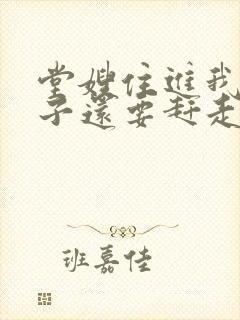 堂嫂住進我
子還要趕走
班嘉佳